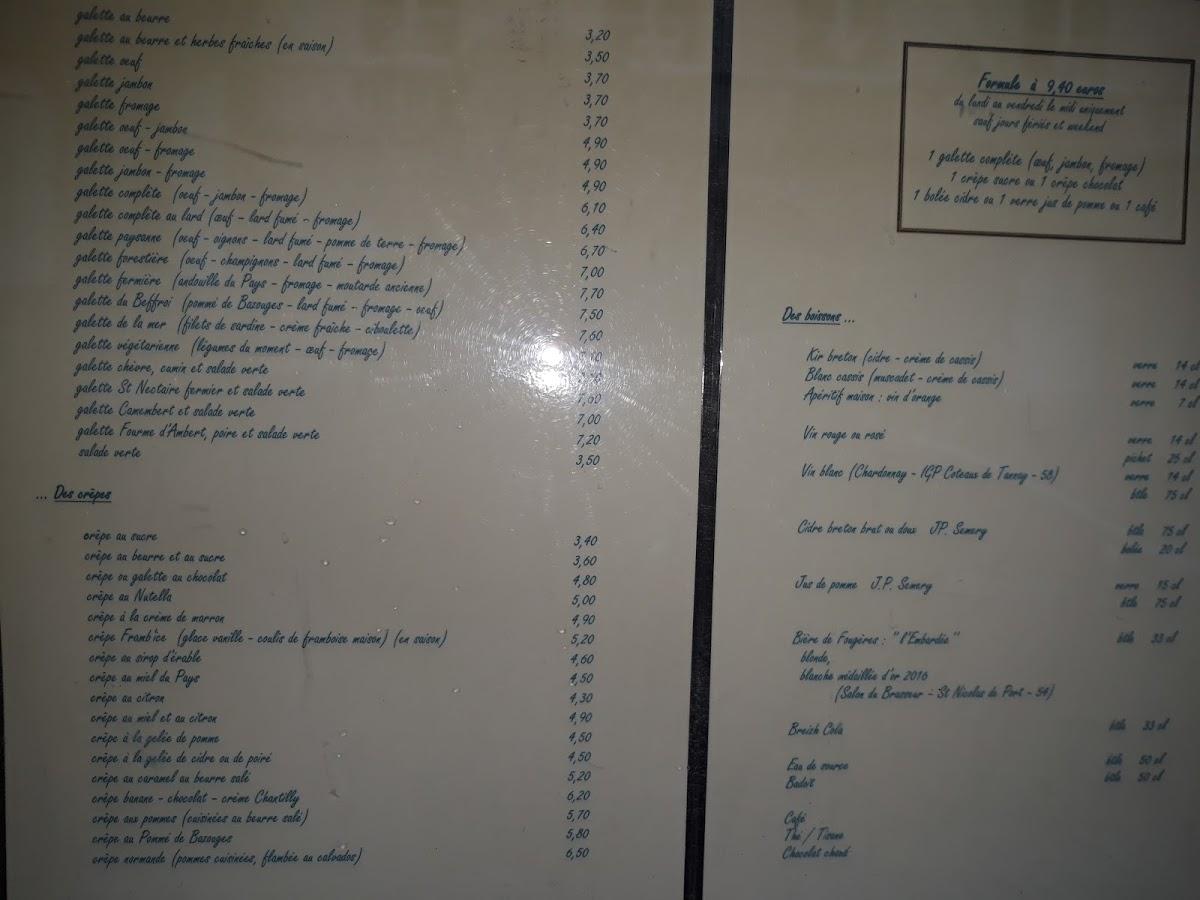 galette au beurre 3,20
galette au beurre et herbes fraîches (en saison) 3,50
galette oeuf 3,70
galette jambon 3,70
galette fromage 3,70
galette oeuf - jambon 4,90
galette oeuf - fromage 4,90
galette jambon - fromage 4,90
galette complète (oeuf - jambon - fromage) 6,10
galette complète au lard (œuf - lard fumé - fromage) 6,40
galette paysanne (oeuf - oignons - lard fumé - pomme de terre - fromage) 6,70
galette forestière (oeuf - champignons - lard fumé - fromage) 7,00
galette fermière (andouille du Pays - fromage - moutarde ancienne) 7,70
galette du Beffroi (pommé de Bazouges - lard fumé - fromage - oeuf) 7,50
galette de la mer (filets de sardine - crème fraîche - ciboulette) 7,60
galette végétarienne (légumes du moment - œuf - fromage)
galette chèvre, cumin et salade verte
galette St Nectaire fermier et salade verte 7,60
galette Camembert et salade verte 7,00
galette Fourme d'Ambert, poire et salade verte 7,20
salade verte 3,50
... Des crêpes
crêpe au sucre 3,40
crêpe au beurre et au sucre 3,60
crêpe ou galette au chocolat 4,80
crêpe au Nutella 5,00
crêpe à la crème de marron 4,90
crêpe Framb'ice (glace vanille - coulis de framboise maison) (en saison) 5,20
crêpe au sirop d'érable 4,60
crêpe au miel du Pays 4,50
crêpe au citron 4,30
crêpe au miel et au citron 4,90
crêpe à la gelée de pomme 4,50
crêpe à la gelée de cidre ou de poiré 4,50
crêpe au caramel au beurre salé 5,20
crêpe banane - chocolat - crème Chantilly 6,20
crêpe aux pommes (cuisinées au beurre salé) 5,70
crêpe au Pommé de Bazouges 5,80
crêpe normande (pommes cuisinées, flambée au calvados) 6,50
Formule à 9,40 euros
du lundi au vendredi le midi uniquement
sauf jours fériés et weekend
1 galette complète (œuf, jambon, fromage)
1 crêpe sucre ou 1 crêpe chocolat
1 bolée cidre ou 1 verre jus de pomme ou 1 café
Des boissons ...
Kir breton (cidre - crème de cassis) verre 14 cl
Blanc cassis (muscadet - crème de cassis) verre 14 cl
Apéritif maison : vin d'orange verre 7 cl
Vin rouge ou rosé verre 14 cl
pichet 25 cl
Vin blanc (Chardonnay - IGP Coteaux de Tannay - 58) verre 14 cl
btle 75 cl
Cidre breton brut ou doux JP. Semery btle 75 cl
bolée 20 cl
Jus de pomme J.P. Semery verre 15 cl
btle 75 cl
Bière de Fougères : "l'Embardée" btle 33 cl
blonde,
blanche médaillée d'or 2016
(Salon du Brasseur - St Nicolas de Port - 54)
Breizh Cola btle 33 cl
Eau de source btle 50 cl
Badoit btle 50 cl
Café
Thé / Tisane
Chocolat chaud